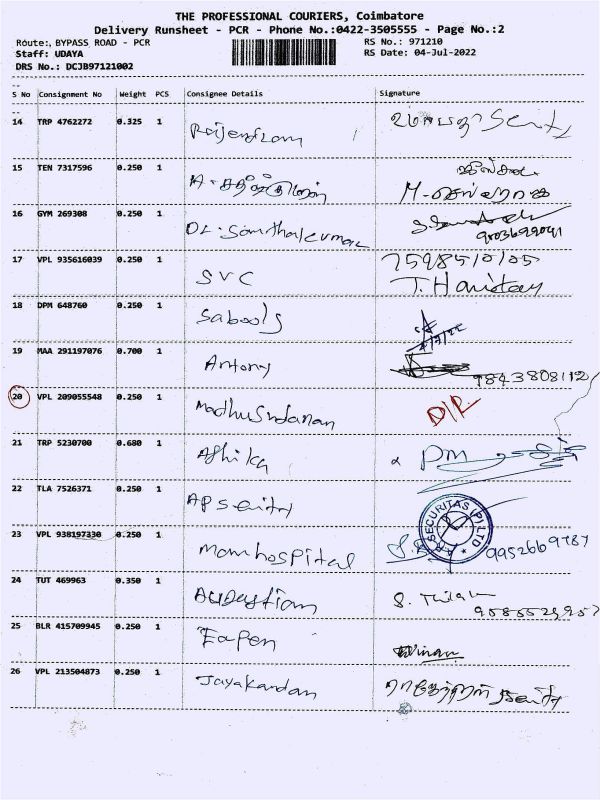 THE PROFESSIONAL COURIERS, Coimbatore
Delivery Runsheet - PCR - Phone No.:0422-3505555 - Page No.:2
Route:, BYPASS ROAD - PCR RS No.: 971210
Staff: UDAYA RS Date: 04-Jul-2022
DRS No.: DCJB97121002
S No Consignment No Weight PCS Consignee Details Signature
14 TRP 4762272 0.325 1 Rajendram
15 TEN 7317596 0.250 1
16 GYM 269308 0.250 1 Dr. Senthalkumar
17 VPL 935616039 0.250 1 SVC 7598510105
18 DPM 648760 0.250 1 Sabools
19 MAA 291197076 0.700 1 Antony 9843808112
20 VPL 209055548 0.250 1 Madhusudanan D/R
21 TRP 5230700 0.680 1 Ashika
22 TLA 7526371 0.250 1 AP
SECURITAS (P) LTD
23 VPL 938197330 0.250 1 Mom hospital 9952669787
24 TUT 469963 0.350 1 Augustian S. Thilak
25 BLR 415709945 0.250 1 Eapen
26 VPL 213504873 0.250 1 Jayakandan